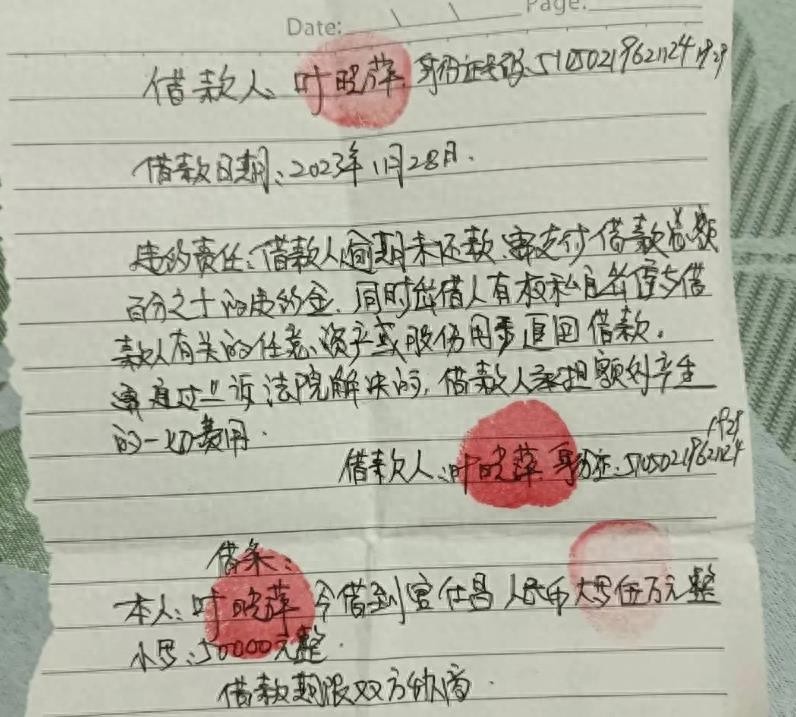 Date: Page:
借款人：叶晓萍 身份证号码：510502196211241929
借款日期：2023年11月28日.
违约责任：借款人逾期未还款，需支付借款总额
百分之十的违约金，同时出借人有权私自处置与借
款人有关的任意资产或股份用于追回借款。
需通过上诉法院解决的，借款人承担额外产生
的一切费用.
借款人：叶晓萍 身份证：510502196211241929
借条：
本人：叶晓萍 今借到 仕昌 人民币大写伍万元整
小写：50000元整.
借款期限双方协商.